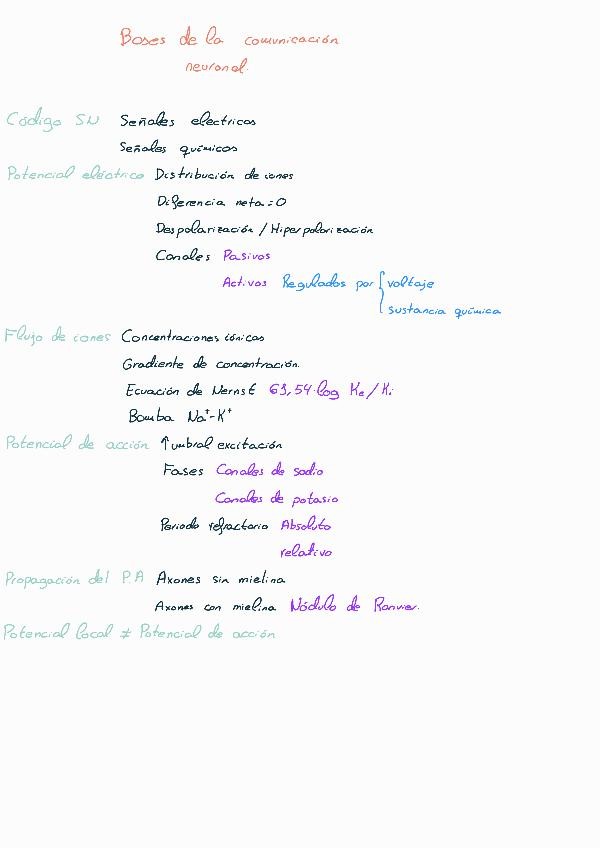 Bases de la comunicación
neuronal.
Código SN Señales electricas
Señales químicas
Potencial eléctrico Distribución de iones
Diferencia neta = 0
Despolarización / Hiperpolarización
Canales Pasivos
Activos Regulados por { voltaje
sustancia química
Flujo de iones Concentraciones iónicas
Gradiente de concentración.
Ecuación de Nernst 63,54·log Ke/Ki
Bomba Na⁺-K⁺
Potencial de acción ↑umbral excitación
Fases Canales de sodio
Canales de potasio
Periodo refractario Absoluto
relativo
Propagación del P.A Axones sin mielina
Axones con mielina Nódulo de Ranvier.
Potencial local ≠ Potencial de acción